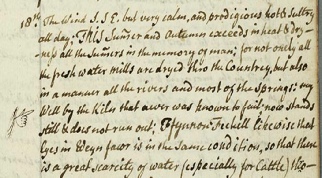 18th The Wind S.S.E. but very calm, and prodigious hot & sultry
all day; This Sum̅er and Autumn exceeds in heat & dry-
ness all the Sum̅ers in the memory of man; for not only all
the fresh water mills are dryed thro the Country, but also
in a manner all the rivers and most of the springs: my
Well by the Kiln that never was known to fail now stands
still & does not run out; Ffynnon likewise that
lyes in Weyn fawr is in the same condition, so that there
is a great scarcity of water (especially for Cattle) thro-